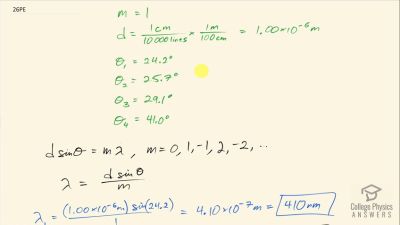 26PE
m = 1
d = 1cm / 10000 lines × 1m / 100cm = 1.00×10⁻⁶ m
θ₁ = 24.2°
θ₂ = 25.7°
θ₃ = 29.1°
θ₄ = 41.0°
d sinθ = mλ , m = 0, 1, -1, 2, -2, ..
λ = d sinθ / m
λ₁ = (1.00×10⁻⁶m) sin(24.2) / 1 = 4.10×10⁻⁷ m = 410 nm
College Physics
ANSWERS